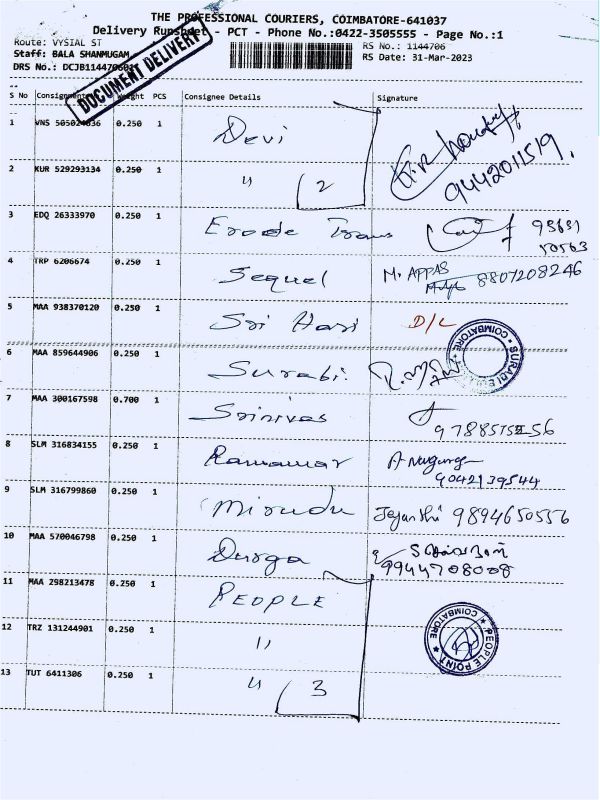 THE PROFESSIONAL COURIERS, COIMBATORE-641037
Delivery Runsheet - PCT - Phone No.:0422-3505555 - Page No.:1
Route: VYSIAL ST
Staff: BALA SHANMUGAM
DRS No.: DCJB1144706
RS No.: 1144706
RS Date: 31-Mar-2023
DOCUMENT DELIVERY
S No Consignment Weight PCS Consignee Details Signature
1 VNS 505024636 0.250 1 Devi
9442011519.
2 KUR 529293134 0.250 1 " 2
3 EDQ 26333970 0.250 1 Erode Trans 95651
50563
4 TRP 6206674 0.250 1 Sequel M. APPAS 8807208246
5 MAA 938370120 0.250 1 Sri Hari D/L
6 MAA 859644906 0.250 1 Surabi. COIMBATORE
7 MAA 300167598 0.700 1 Srinivas
8 SLM 316834155 0.250 1 Ramamar
9042139544
9 SLM 316799860 0.250 1 Mirudu Jayanthi 9894650556
10 MAA 570046798 0.250 1 Durga
9944708008
11 MAA 298213478 0.250 1 PEOPLE
PEOPLE POINT COIMBATORE
12 TRZ 131244901 0.250 1 "
13 TUT 6411306 0.250 1 " 3